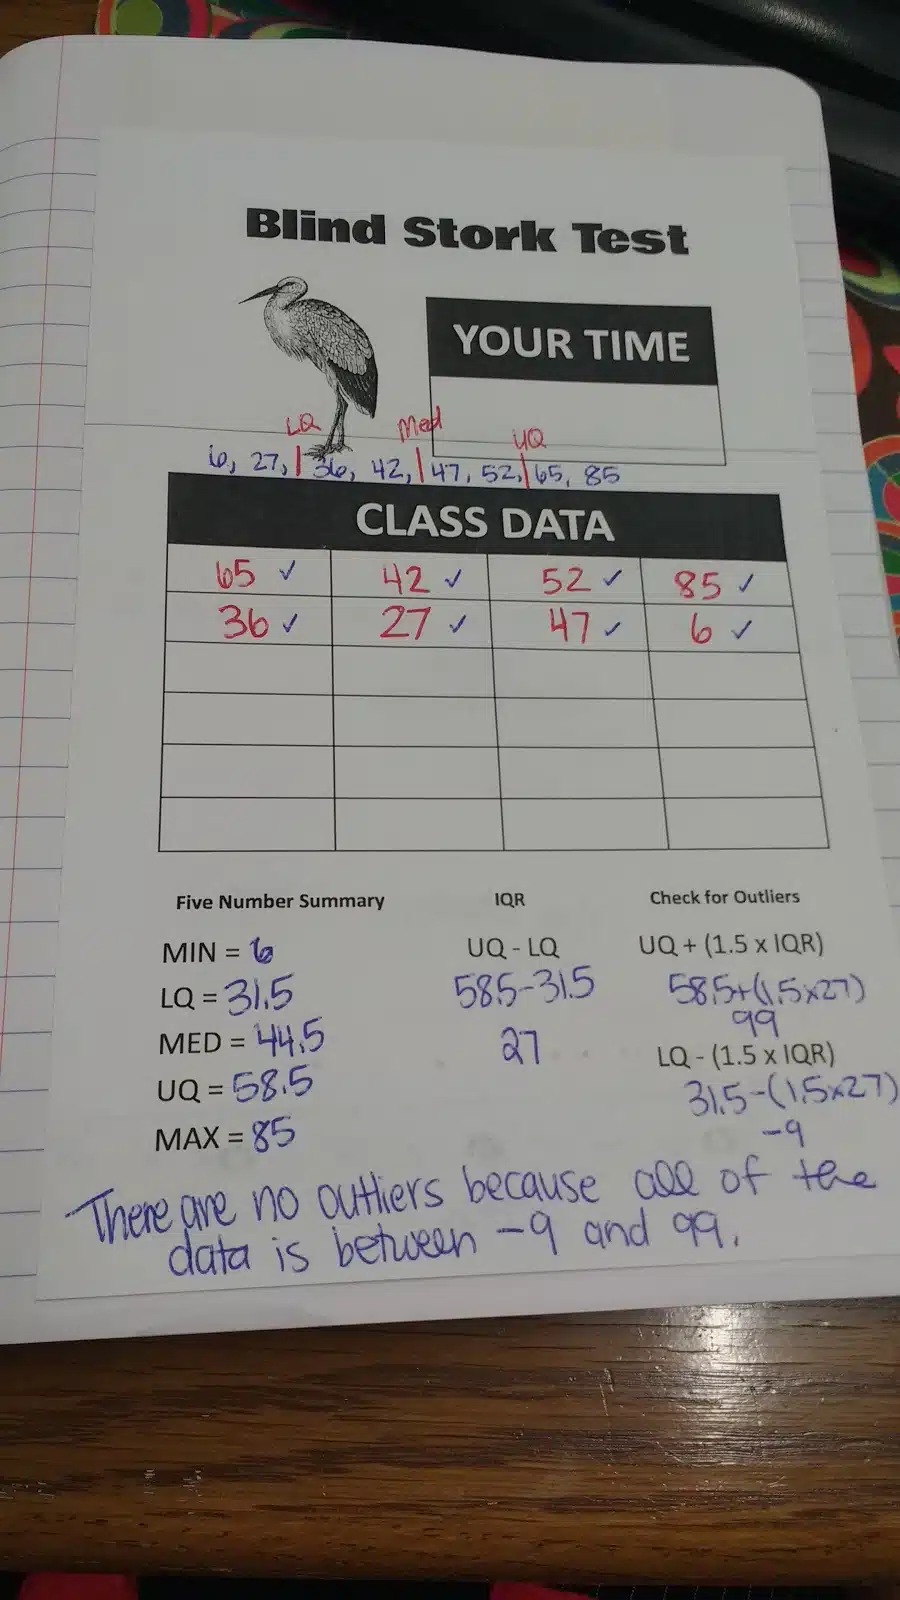 Blind Stork Test
YOUR TIME
LQ Med UQ
6, 27, | 36, 42, | 47, 52, | 65, 85
CLASS DATA
65 ✓ 42 ✓ 52 ✓ 85 ✓
36 ✓ 27 ✓ 47 ✓ 6 ✓
Five Number Summary
MIN = 6
LQ = 31.5
MED = 44.5
UQ = 58.5
MAX = 85
IQR
UQ - LQ
58.5-31.5
27
Check for Outliers
UQ + (1.5 x IQR)
58.5+(1.5x27)
99
LQ - (1.5 x IQR)
31.5-(1.5x27)
-9
There are no outliers because all of the
data is between -9 and 99.